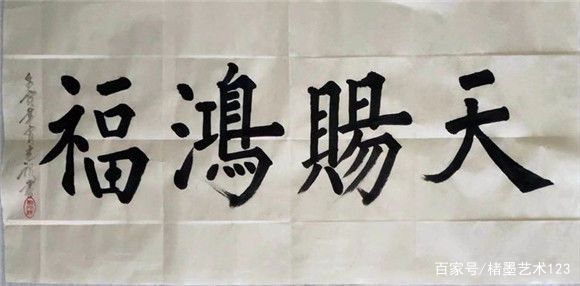 天賜鴻福
百家号/楮墨艺术123